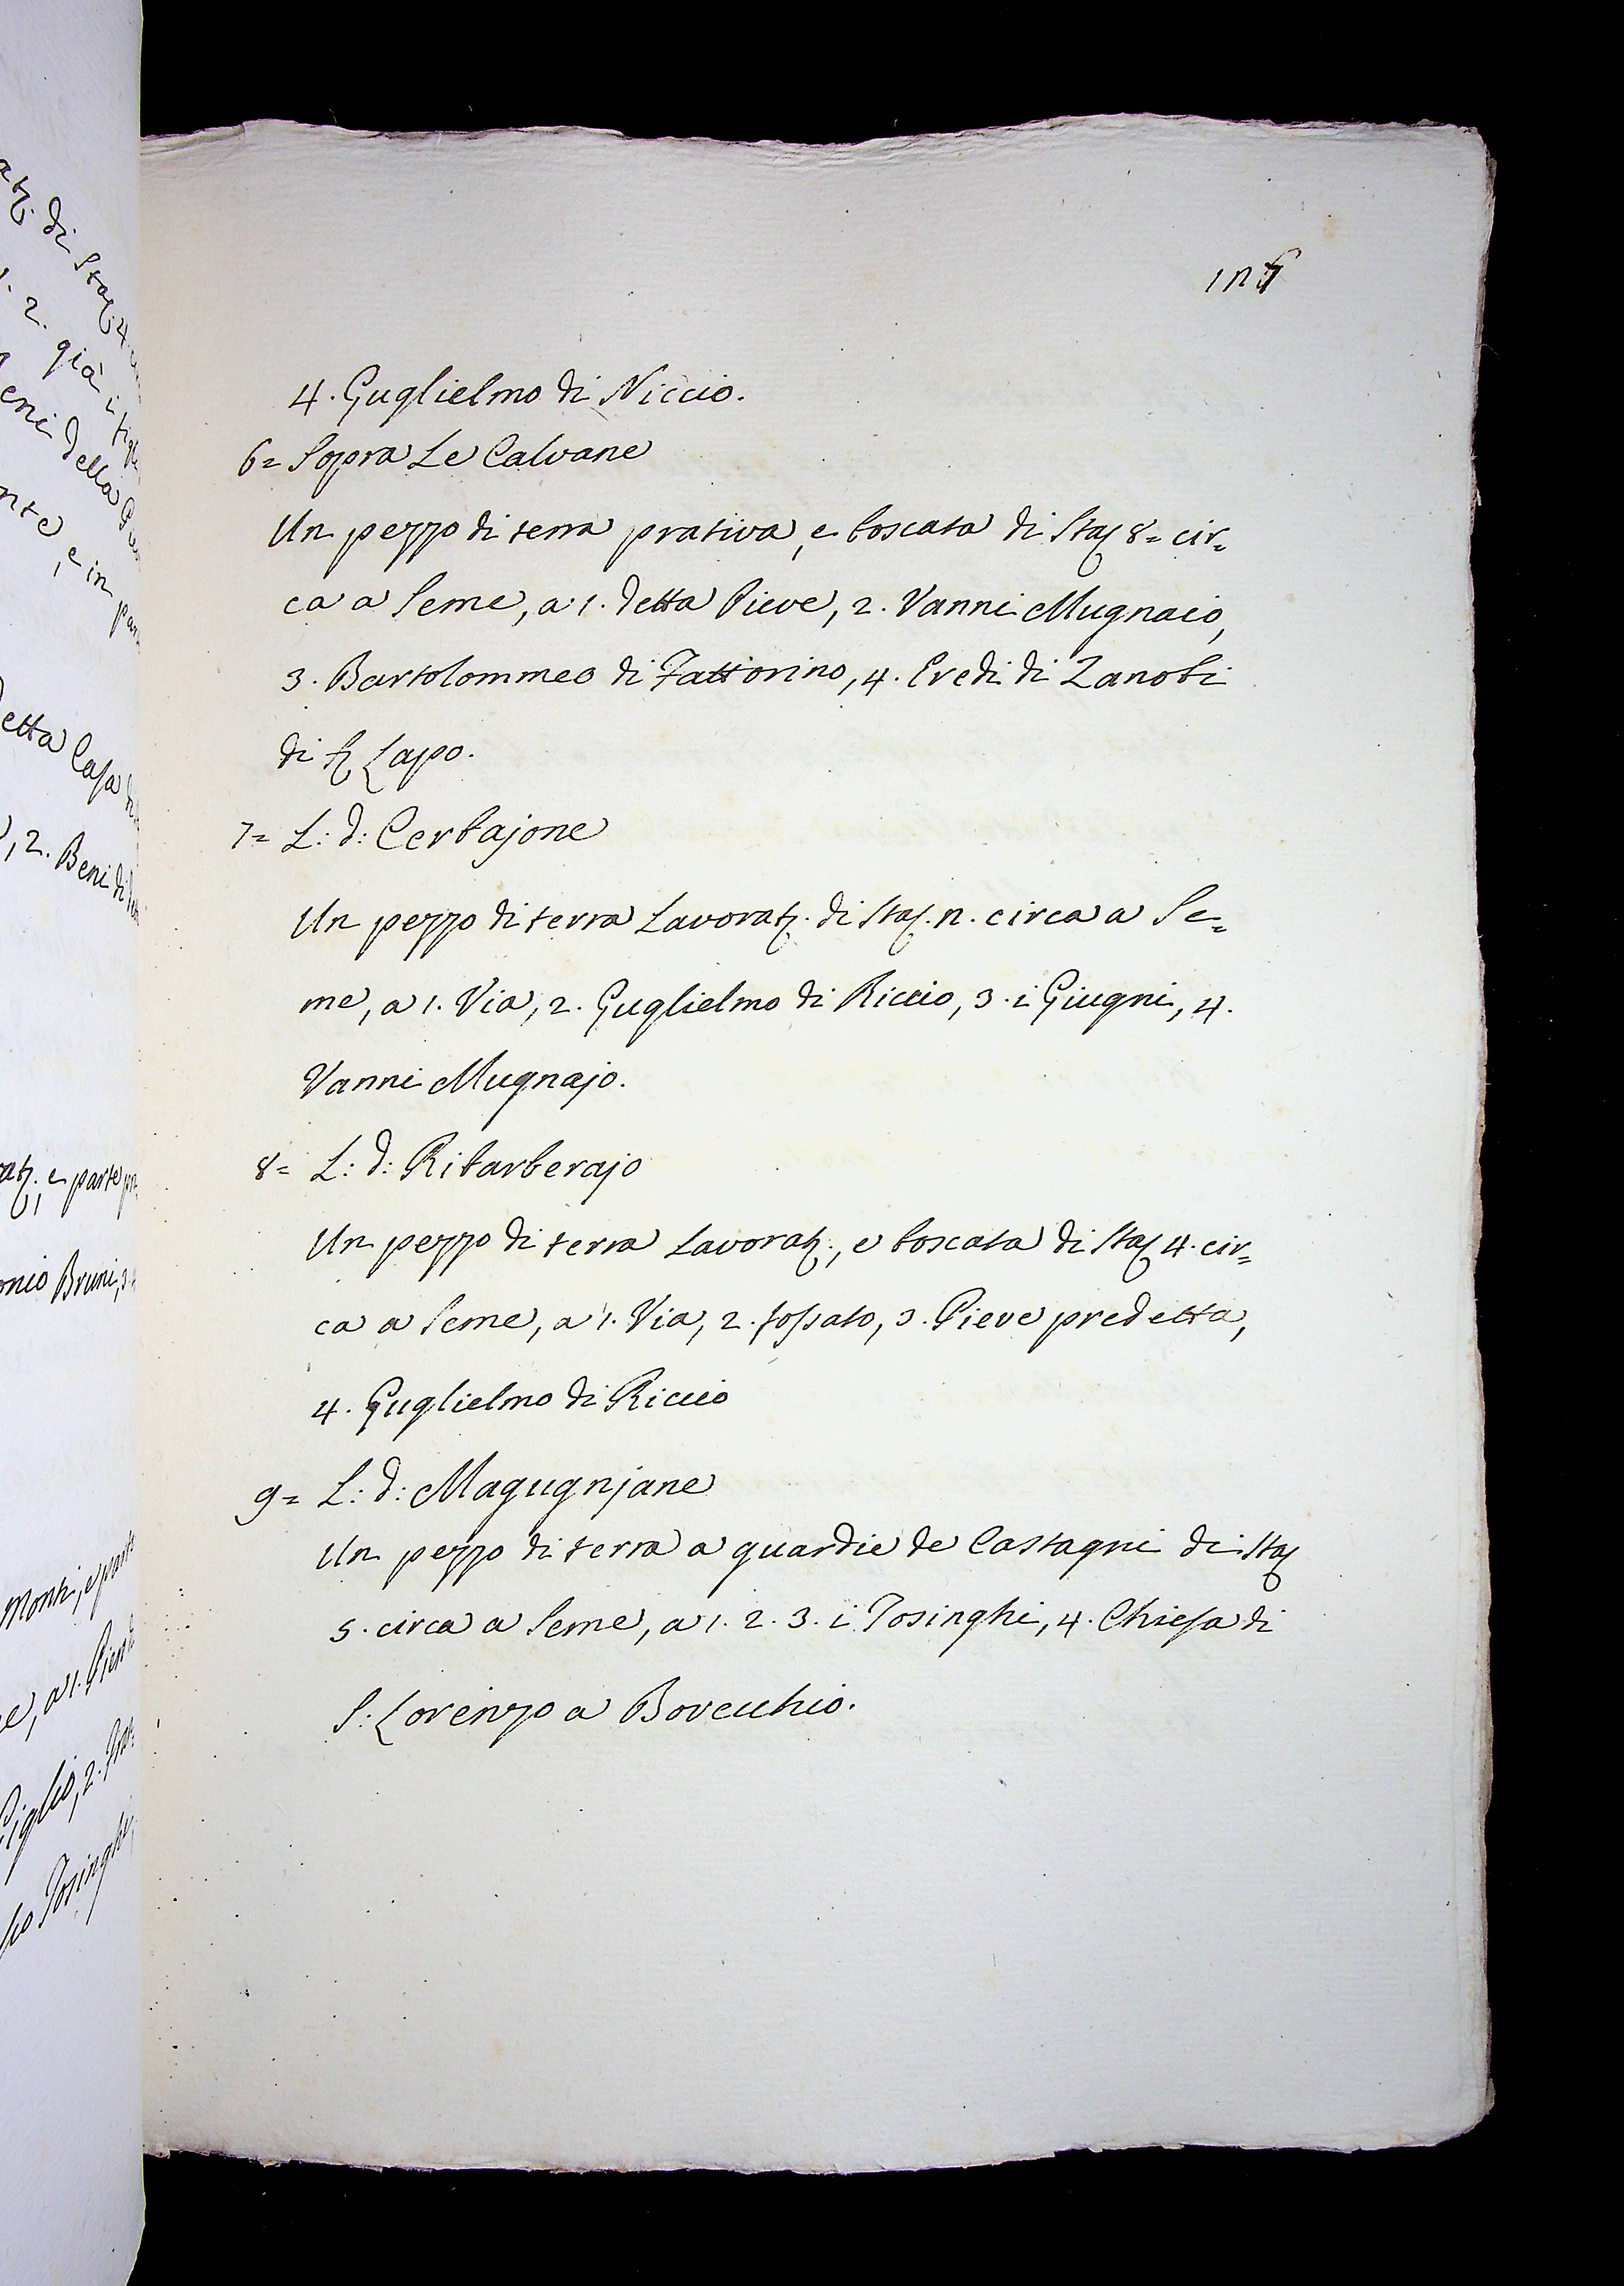 4. Guglielmo di Niccio.
6= Sopra Le Calvane
Un pezzo di terra prativa, e boscata di Staj 8= cir=
ca a Seme, a 1. detta Pieve, 2. Vanni Mugnaio,
3. Bartolommeo di Fattorino, 4. Eredi di Zanobi
di Lapo.
7= L: d: Cerbajone
Un pezzo di terra Lavorat. di Staj. n. circa a Se=
me, a 1. Via, 2. Guglielmo di Riccio, 3. i Giugni, 4.
Vanni Mugnajo.
8= L: d: Ribarberajo
Un pezzo di terra Lavorat., e boscata di Staj 4. cir=
ca a Seme, a 1. Via, 2. fossato, 3. Pieve predetta,
4. Guglielmo di Riccio
9= L: d: Magugnjane
Un pezzo di terra a guardie de Castagni di Staj
5. circa a Seme, a 1. 2. 3. i Tosinghi, 4. Chiesa di
S: Lorenzo a Bovecchio.